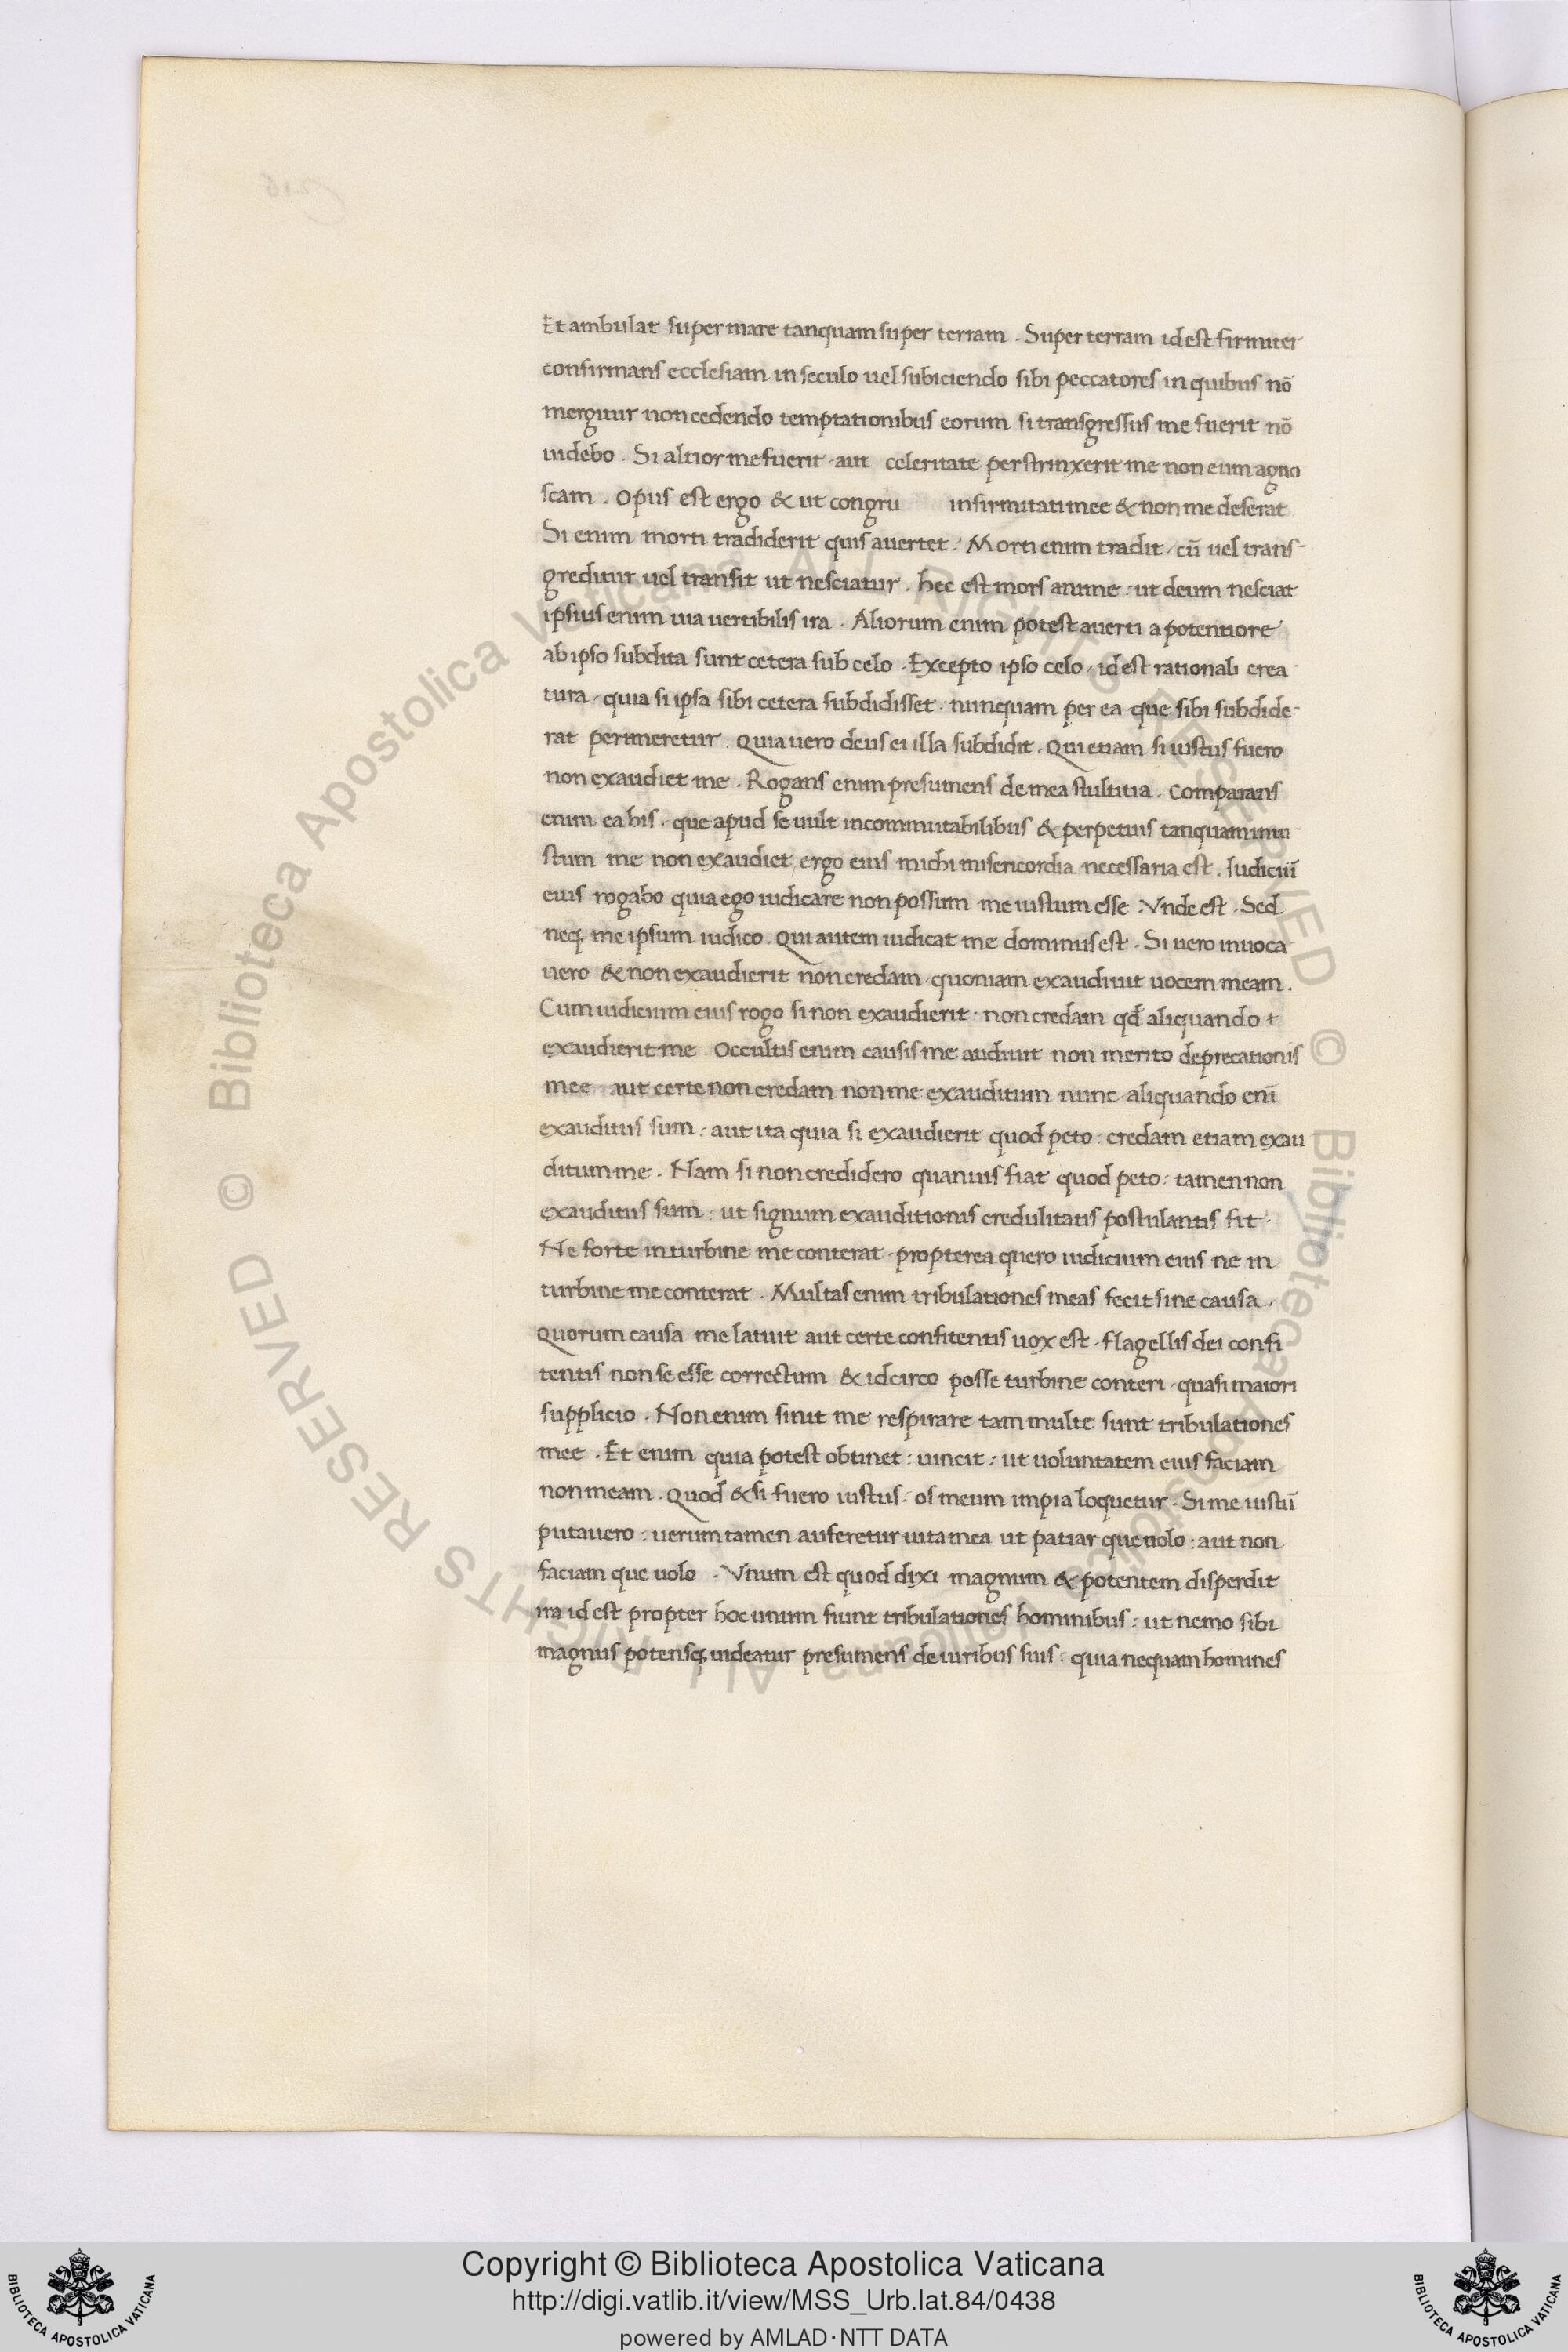 Et ambulat super mare tanquam super terram . Super terram id est firmiter
confirmans ecclesiam in seculo uel subiciendo sibi peccatores in quibus nō
mergitur non cedendo temptationibus eorum si transgressus me fuerit nō
uidebo . Si altior me fuerit aut celeritate perstrinxerit me non eum agno
scam . Opus est ergo & ut congru infirmitati mee & non me deserat
Si enim morti tradiderit quis auertet . Morti enim tradit / cū uel trans-
greditur uel transit ut nesciatur . hec est mors anime : ut deum nesciat
ipsius enim uia uertibilis ira . Aliorum enim potest auerti a potentiore
ab ipso subdita sunt cetera sub celo . Excepto ipso celo / id est rationali crea
tura / quia si ipsa sibi cetera subdidisset . nunquam per ea que sibi subdide-
rat perimeretur . Quia uero deus ei illa subdidit . Qui etiam si iustus fuero
non exaudiet me . Rogans enim presumens de mea stultitia . Comparans
enim ea his . que apud se uult incommutabilibus & perpetuis tanquam iniu
stum me non exaudiet / ergo eius michi misericordia necessaria est . Iudiciū
eius rogabo quia ego iudicare non possum me iustum esse . Vnde est . Sed
neq; me ipsum iudico . Qui autem iudicat me dominus est . Si uero inuoca
uero & non exaudierit non credam quoniam exaudiuit uocem meam .
Cum iudicium eius rogo si non exaudierit . non credam qd̄ aliquando
exaudierit me . Occultis enim causis me audiuit non merito deprecationis
mee . aut certe non credam non me exauditum nunc aliquando enī
exauditus sum : aut ita quia si exaudierit quod peto : credam etiam exau
ditum me . Nam si non credidero quanuis fiat quod peto : tamen non
exauditus sum : ut signum exauditionis credulitatis postulantis sit .
Ne forte in turbine me conterat . propterea quero iudicium eius ne in
turbine me conterat . Multas enim tribulationes meas fecit sine causa .
Quorum causa me latuit aut certe confitentis uox est . flagellis dei confi
tentis non se esse correctum & idcirco posse turbine conteri quasi maiori
supplicio . Non enim sinit me respirare tam multe sunt tribulationes
mee . Et enim quia potest obtinet : uincit : ut uoluntatem eius faciam
non meam . Quod & si fuero iustus : os meum impia loquetur . Si me iustū
putauero : uerum tamen auferetur uita mea ut patiar que nolo : aut non
faciam que uolo . Vnum est quod dixi magnum & potentem disperdit
ira id est propter hoc unum fiunt tribulationes hominibus : ut nemo sibi
magnus potensq; uideatur presumens de uiribus suis : quia nequam homines
© Biblioteca Apostolica Vaticana ALL RIGHTS RESERVED
© Biblioteca Apostolica Vaticana ALL RIGHTS RESERVED
Copyright © Biblioteca Apostolica Vaticana
http://digi.vatlib.it/view/MSS_Urb.lat.84/0438
powered by AMLAD·NTT DATA
BIBLIOTECA APOSTOLICA VATICANA
BIBLIOTECA APOSTOLICA VATICANA